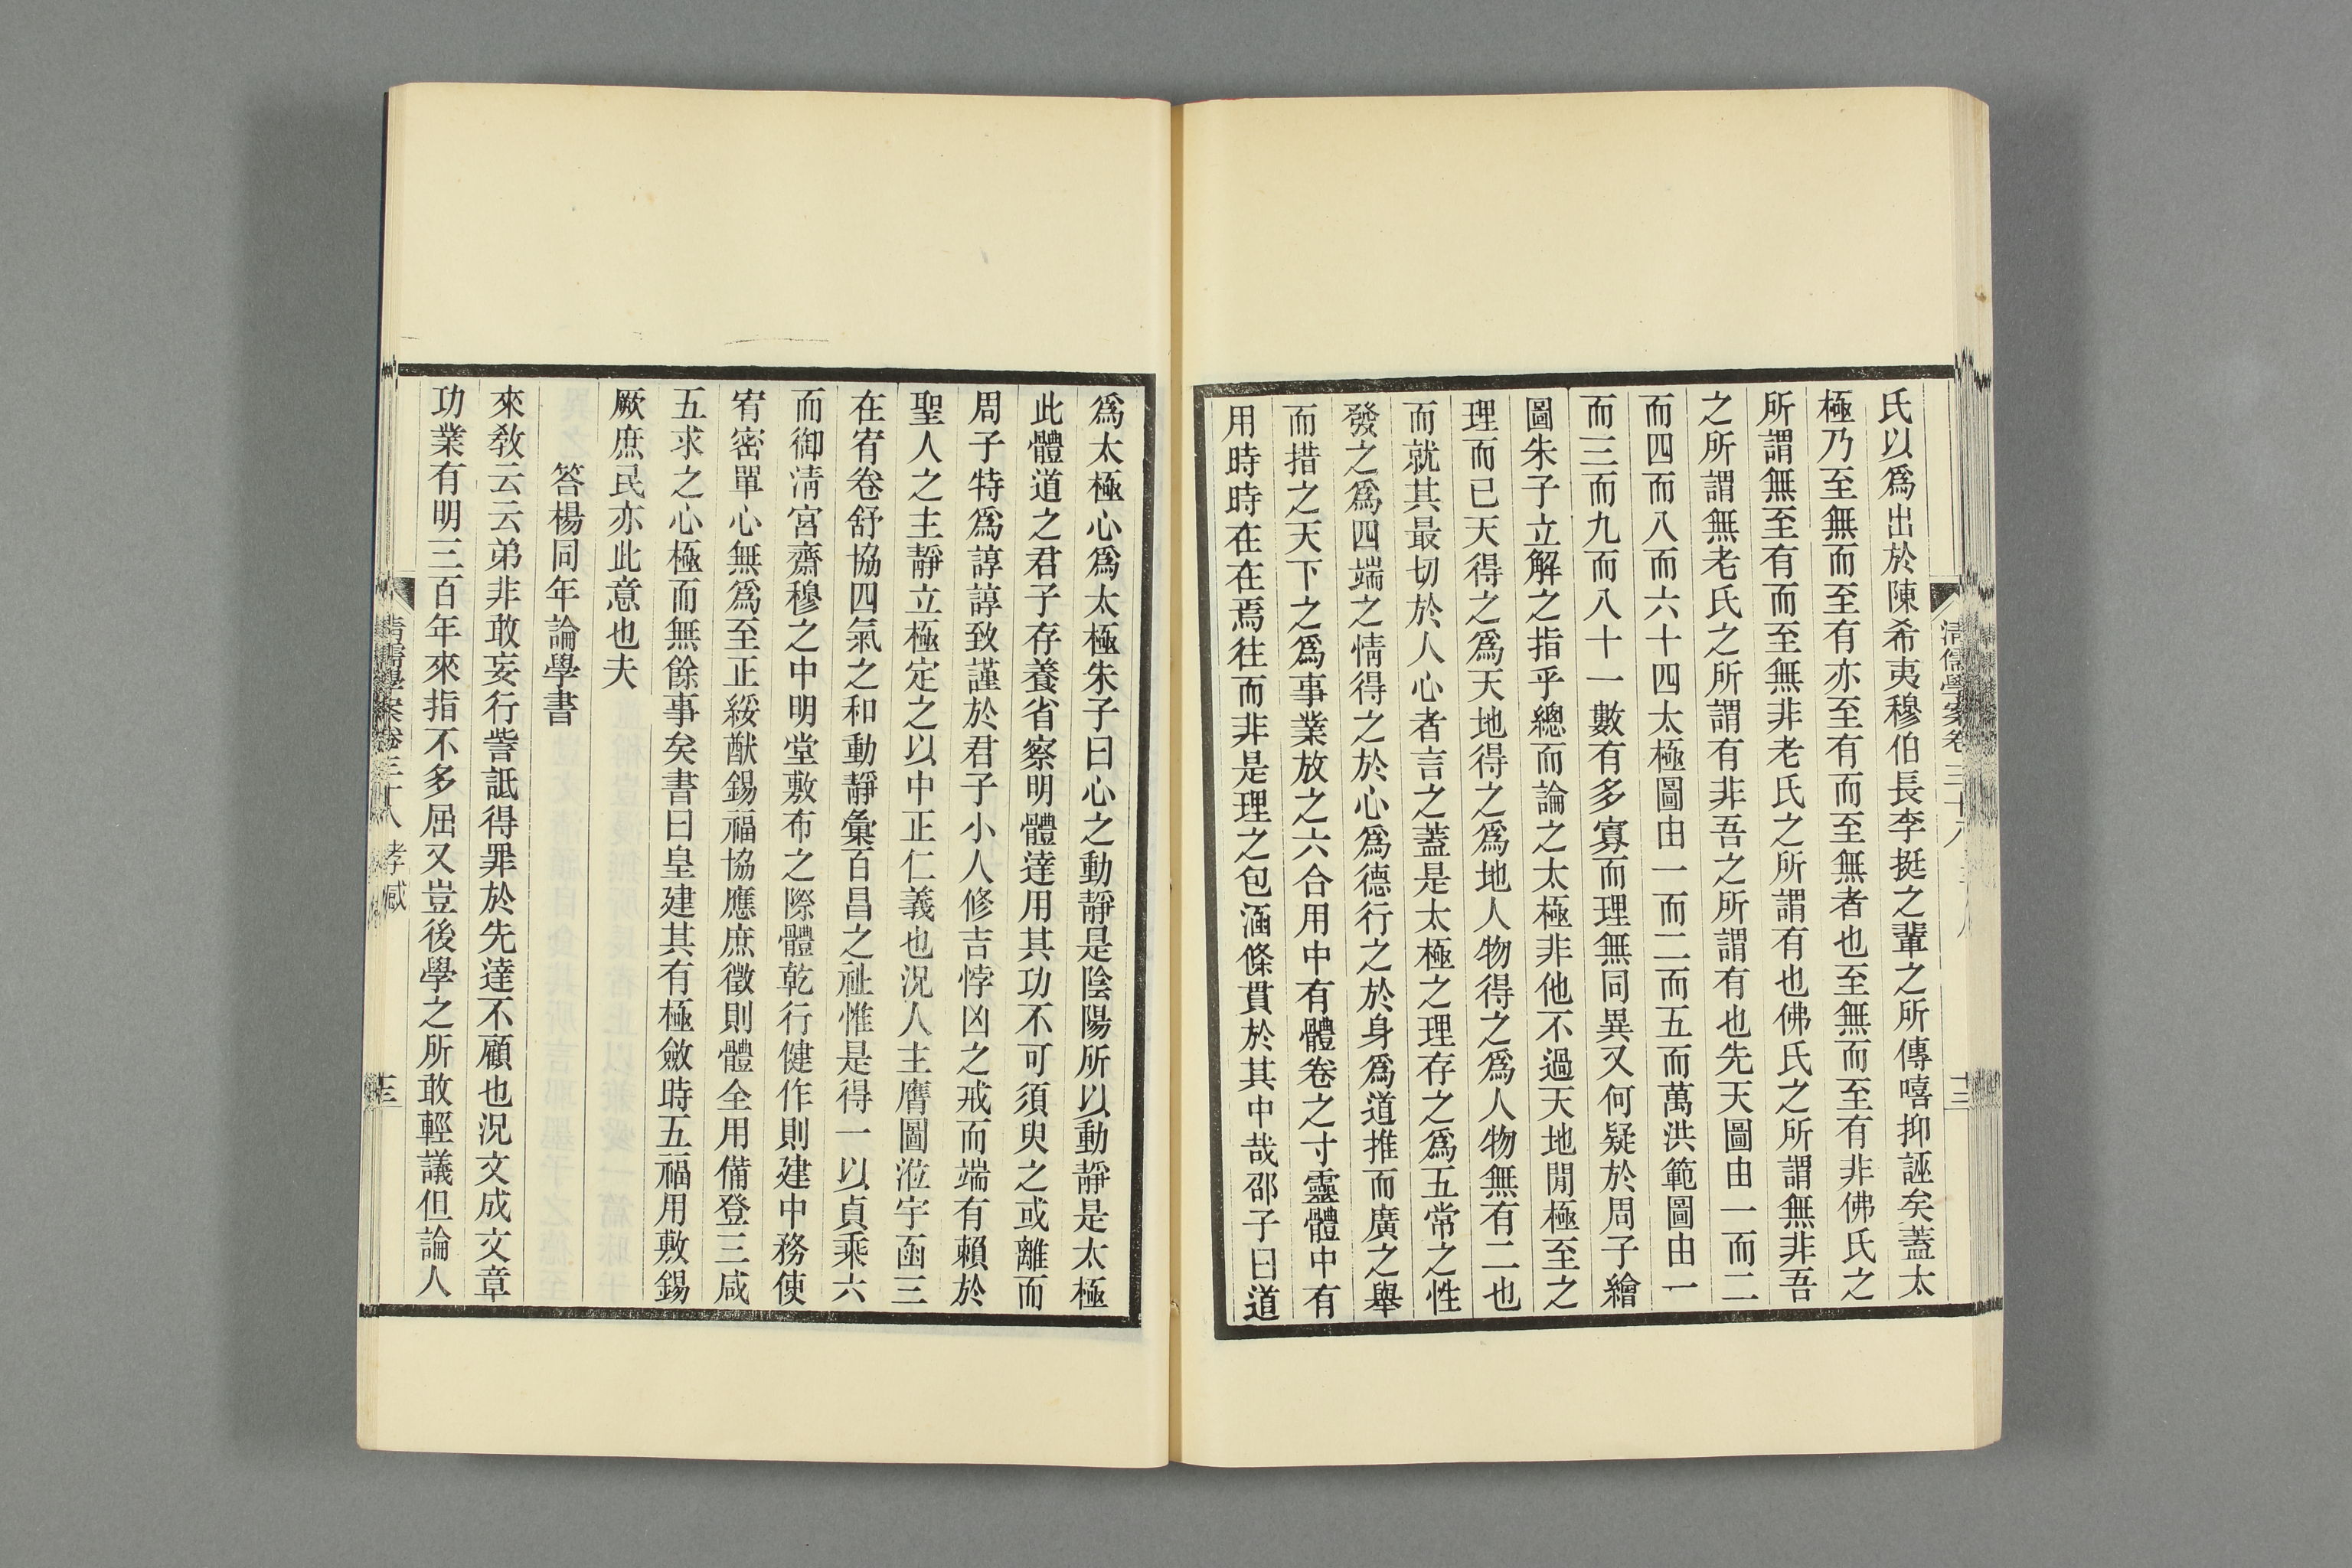 氏以爲出於陳希夷穆伯長李挺之輩之所傳嘻抑誣矣蓋太
極乃至無而至有亦至有而至無者也至無而至有非佛氏之
所謂無至有而至無非老氏之所謂有也佛氏之所謂無非吾
之所謂無老氏之所謂有非吾之所謂有也先天圖由一而二
而四而八而六十四太極圖由一而二而五而萬洪範圖由一
而三而九而八十一數有多寡而理無同異又何疑於周子繪
圖朱子立解之指乎總而論之太極非他不過天地閒極至之
理而已天得之爲天地得之爲地人物得之爲人物無有二也
而就其最切於人心者言之蓋是太極之理存之爲五常之性
發之爲四端之情得之於心爲德行之於身爲道推而廣之舉
而措之天下之爲事業放之六合用中有體卷之寸靈體中有
用時時在在焉往而非是理之包涵條貫於其中哉邵子曰道
清儒學案卷三十八
十三
爲太極心爲太極朱子曰心之動靜是陰陽所以動靜是太極
此體道之君子存養省察明體達用其功不可須臾之或離而
周子特爲諄諄致謹於君子小人修吉悖凶之戒而端有賴於
聖人之主靜立極定之以中正仁義也況人主膺圖涖宇函三
在宥卷舒協四氣之和動靜彙百昌之祉惟是得一以貞乘六
而御淸宮齋穆之中明堂敷布之際體乾行健作則建中務使
宥密單心無爲至正綏猷錫福協應庶徵則體全用備登三咸
五求之心極而無餘事矣書曰皇建其有極斂時五福用敷錫
厥庶民亦此意也夫
答楊同年論學書
來敎云云弟非敢妄行訾詆得罪於先達不顧也況文成文章
功業有明三百年來指不多屈又豈後學之所敢輕議但論人
清儒學案卷三十八 孝感
十三